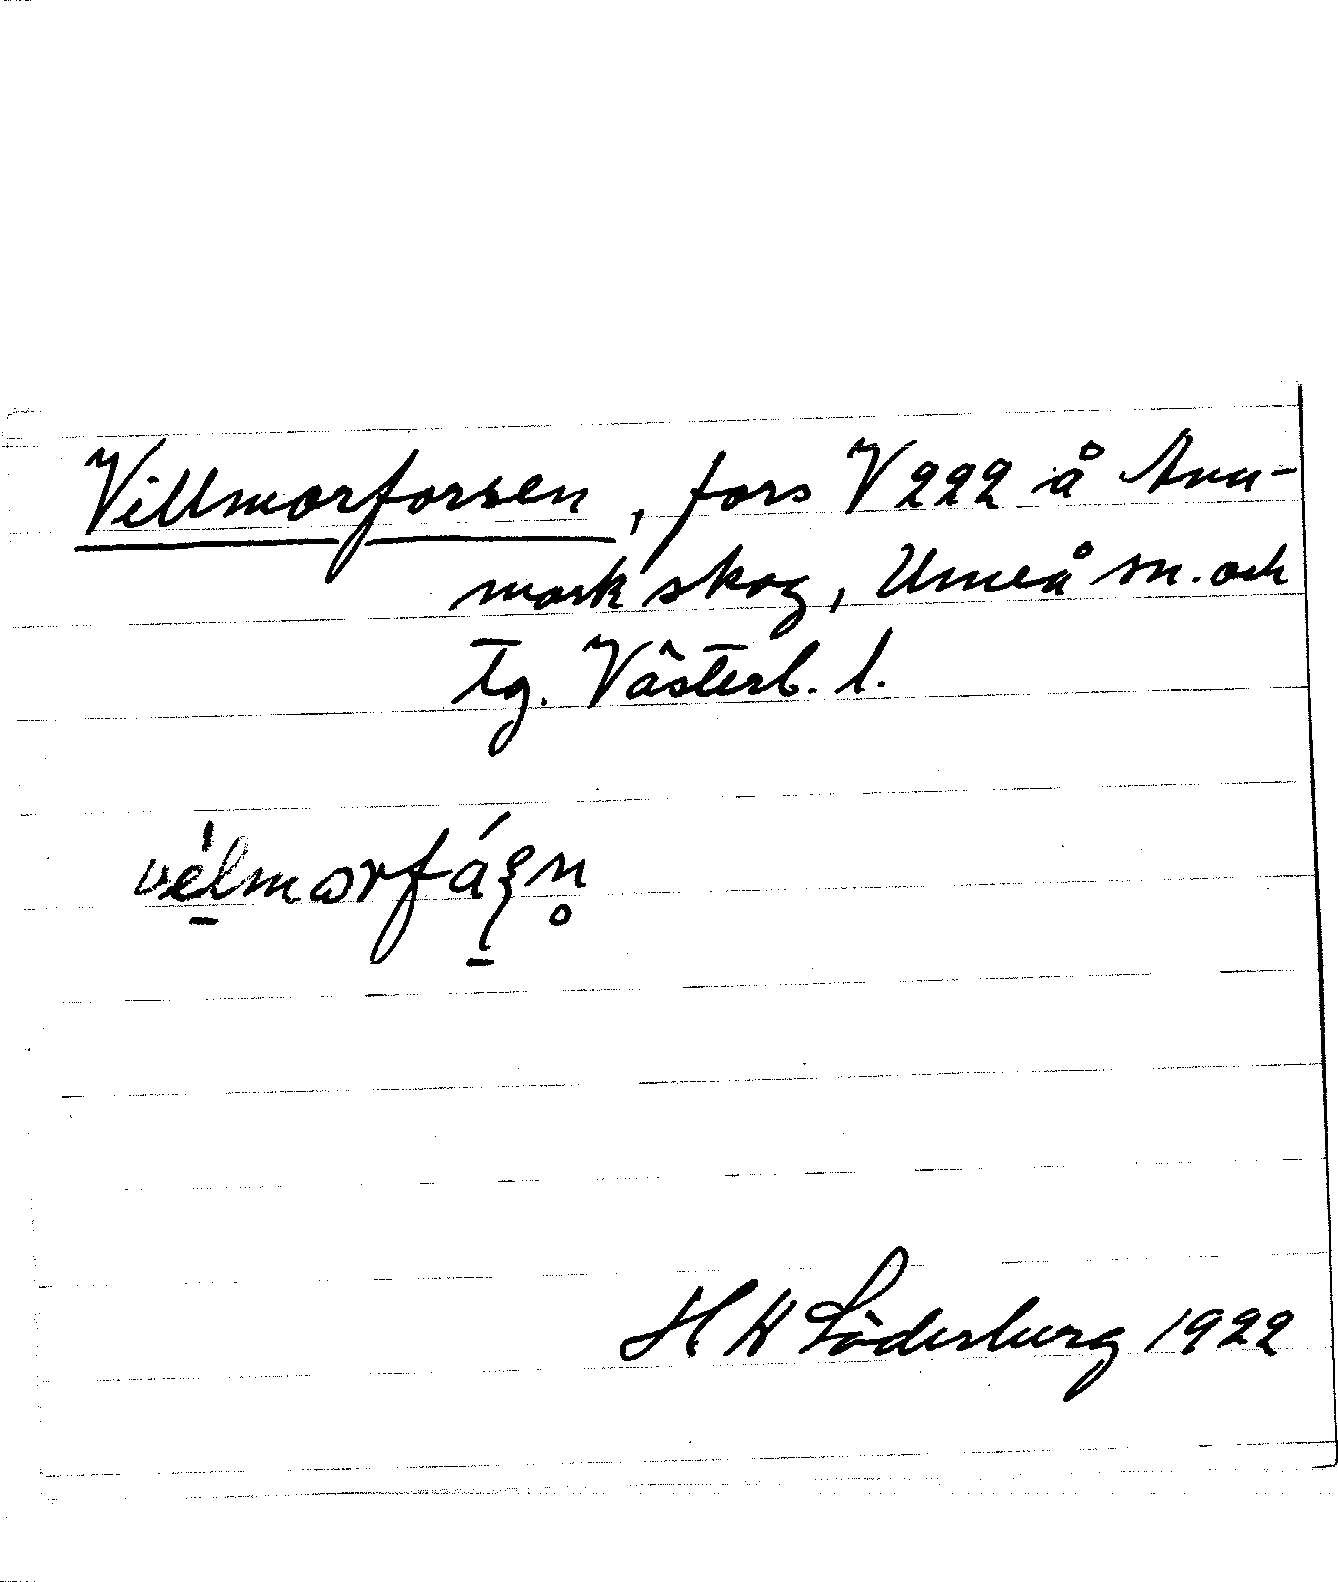 Villmorforsen, fors V 222 å Anu-
mark skog, Umeå sn. och
tg. Västerb. l.
H W Söderberg 1922